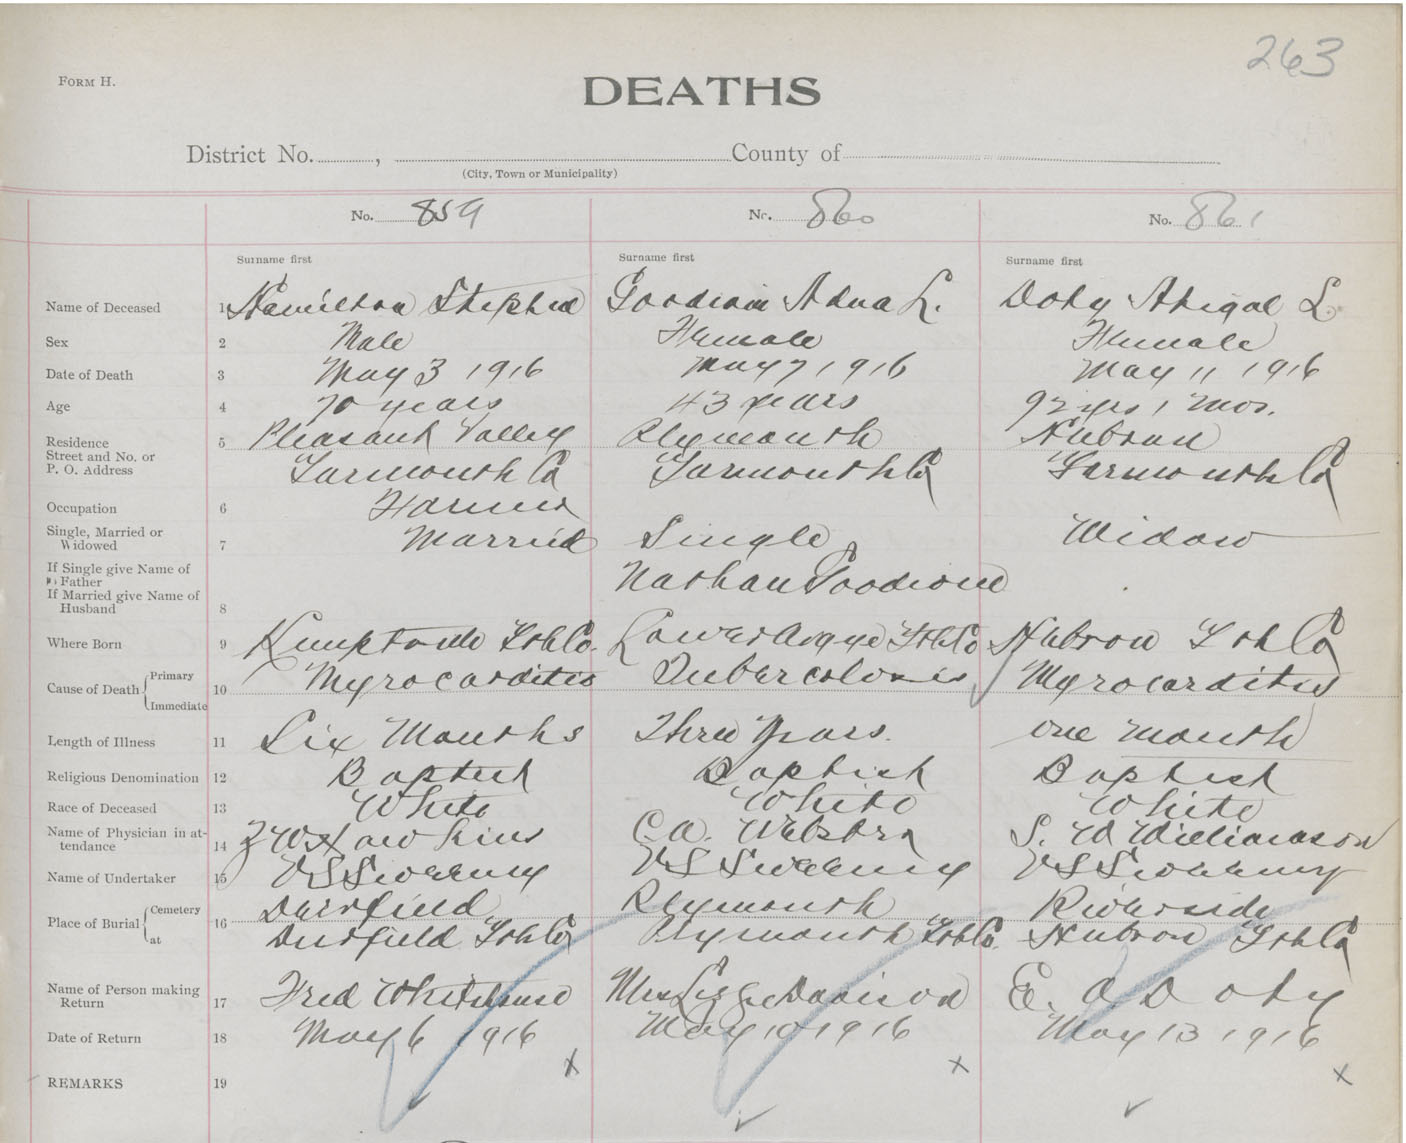 263
FORM H.
DEATHS
District No. , County of
(City, Town or Municipality)
No. 859 No. 860 No. 861
Surname first Surname first Surname first
Name of Deceased 1 Hamilton Stephen Goodwin Adna L. Doty Abigal L.
Sex 2 Male Female Female
Date of Death 3 May 3 1916 May 7 1916 May 11 1916
Age 4 70 years 43 years 92 yrs 1 mos.
Residence 5 Pleasant Valley Plymouth Hebron
Street and No. or
P. O. Address Yarmouth Co Yarmouth Co Yarmouth Co
Occupation 6 Farmer
Single, Married or
Widowed 7 Married Single Widow
If Single give Name of
Father Nathan Goodwin
If Married give Name of
Husband 8
Where Born 9 Kemptville Yth Co. Lower Argyle Yth Co Hebron Yth Co
Cause of Death Primary Myrocarditis Tubercolosis Myrocarditis
10
Immediate
Length of Illness 11 Six Months Three Years. one month
Religious Denomination 12 Baptist Baptist Baptist
Race of Deceased 13 White White White
Name of Physician in at-
tendance 14 Z W Hawkins C.A. Webster S. W Williamson
Name of Undertaker 15 V S Sweeny V S Sweeny V S Sweeny
Place of Burial Cemetery Deerfield Plymouth Riverside
16
at Deerfield Yth Co Plymouth Yth Co. Hebron Yth Co
Name of Person making
Return 17 Fred Whitehouse Mrs Davison E. A Doty
Date of Return 18 May 6 1916 May 10 1916 May 13 1916
x x x
REMARKS 19